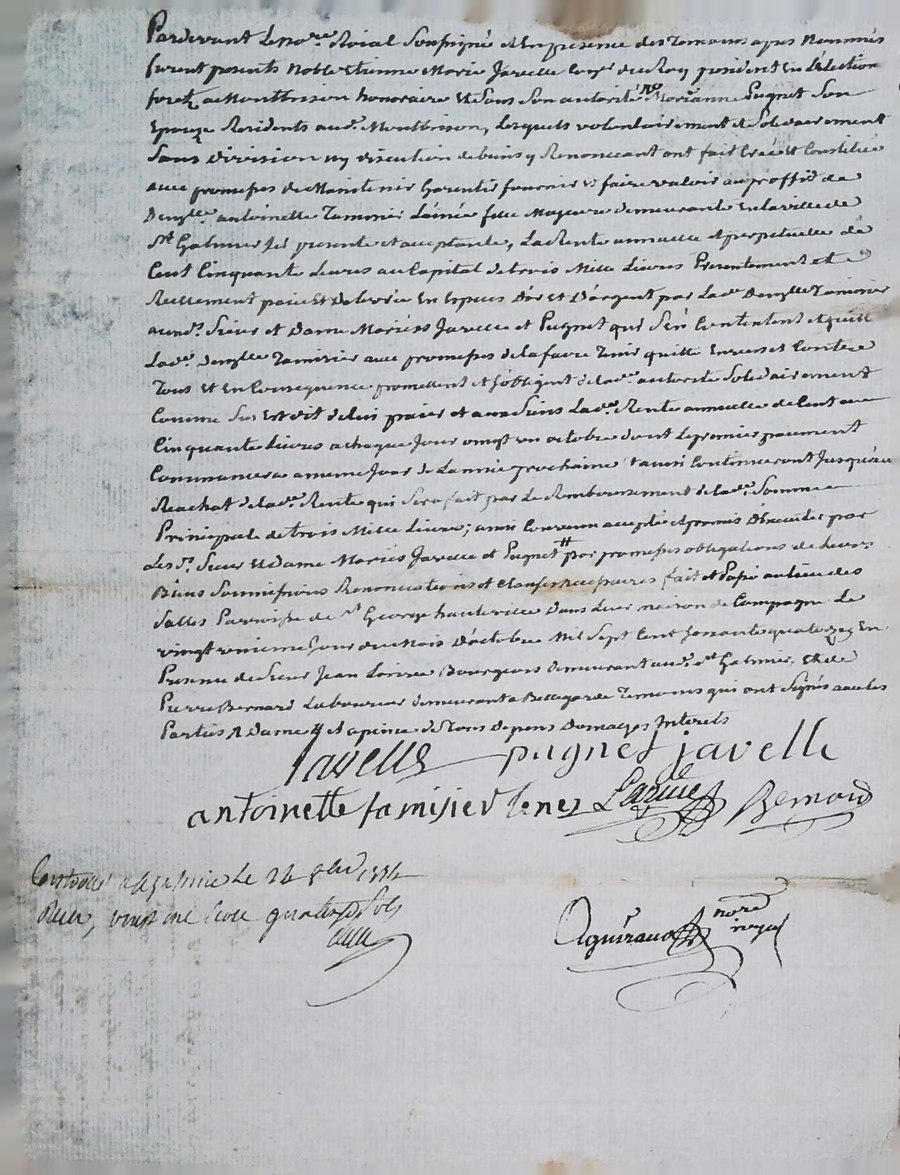 Pardevant Le no.re Roial Soussigné et En presence des Temoins apres Nommés
furent presents Noble Etienne Marie Javelle du Roy president En L'election
forez a Montbrison honoraire Et Sous Son autorité Marianne Pugnet Son
Epouze Residents aud. Montbrison, Lesquels volontairement et Solidairement
Sans division ny discution de biens y Renonceant ont fait Créé Et Constitué
avec promesses de Maintenir Garentir fournir et faire valoir au proffit de
Demy.lle antoinette Tamisier L'ainée fille Majeure demeurante En la ville de
S.t Galmier Ici presente et acceptante, La Rente annuelle et perpetuelle de
Cent Cinquante Livres au Capital de trois Mille Livres Presentement et
Reellement paié Et delivrée En Especes d'or Et D'argent par Lad.e Demylle Tamisier
auxd.s Sieur et Dame Mariés Javelle et Pugnet qui S'en Contentent et quitt
Lad.e demylle Tamisier avec promesses de la faire Tenir quitte Envers et Contre
Tous Et En Consequence promettent et S'obligent de lad.e autorité Solidairement
Comme Sus Est dit de lui paier et aux Siens Lad.e Rente annuelle de Cent
Cinquante Livres a chaque Jour vingt un octobre dont Le premier paiement
Commancera a meme Jour de L'année prochaine Et ainsi Continueront Jusqu'au
Reachat de lad.e Rente qui Sera fait par Le Remboursement de lad.e Somme
Principale de trois Mille Livres; ainsi Convenu accepté et promis D'executer par
Les d. Sieur Et Dame Mariés Javelle et Pugnet # par promesses obligations de Leurs
Biens Soumissions Renonciations et Clauses Necessaires fait et Passé au lieu des
Salles Parroisse de S.t George hauteville Dans Leur maison de Compagne Le
vingt unieme Jour du Mois D'octobre Mil Sept Cent Soixante quatorze En
Presence de Sieur Jean Bourgeois demeurant aud. S.t Galmier, Et de
Pierre Bernard Laboureur demeurant a Bellegarde Temoins qui ont Signés avec les
Parties # et a peine de Tous depens Domages Interets
Javelle pugnet javelle
antoinette tamisier Bernard
Controllé a S.t Galmier Le 24 1774
Reçu, vingt une Livre quatre Sols
nore royal